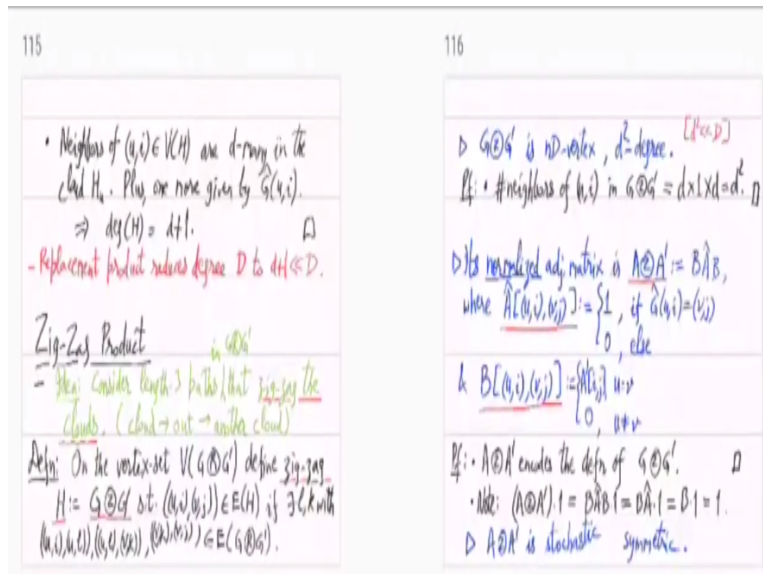 115
• Neighbors of (u,i) ∈ V(H) are d-many in the
cloud Hᵤ. Plus, one more given by Ĝ(u,i).
⇒ deg(H) = d+1. □
- Replacement product reduces degree D to d+1 ≪ D.
Zig-Zag Product
in GⓡG'
- Idea: Consider length-3 paths (that zig-zag the
clouds. (cloud → out → another cloud)
Defn: On the vertex-set V(GⓡG') define zig-zag
H := GⓩG' s.t. ((u,i),(v,j)) ∈ E(H) if ∃ℓ,k with
((u,i),(u,ℓ)), ((u,ℓ),(v,k)), ((v,k),(v,j)) ∈ E(GⓡG').
116
▷ GⓩG' is nD-vertex, d²-degree. [d²≪D]
Pf: • #neighbors of (u,i) in GⓩG' = d×1×d = d². □
▷ Its normalized adj. matrix is AⓩA' := BÂB,
where Â[(u,i),(v,j)] := { 1, if Ĝ(u,i)=(v,j)
0, else
& B[(u,i),(v,j)] := { A'[i,j], u=v
0, u≠v
Pf: • AⓩA' encodes the defn of GⓩG'. □
• Note: (AⓩA')·1 = BÂB·1 = BÂ·1 = B·1 = 1.
▷ AⓩA' is stochastic symmetric.